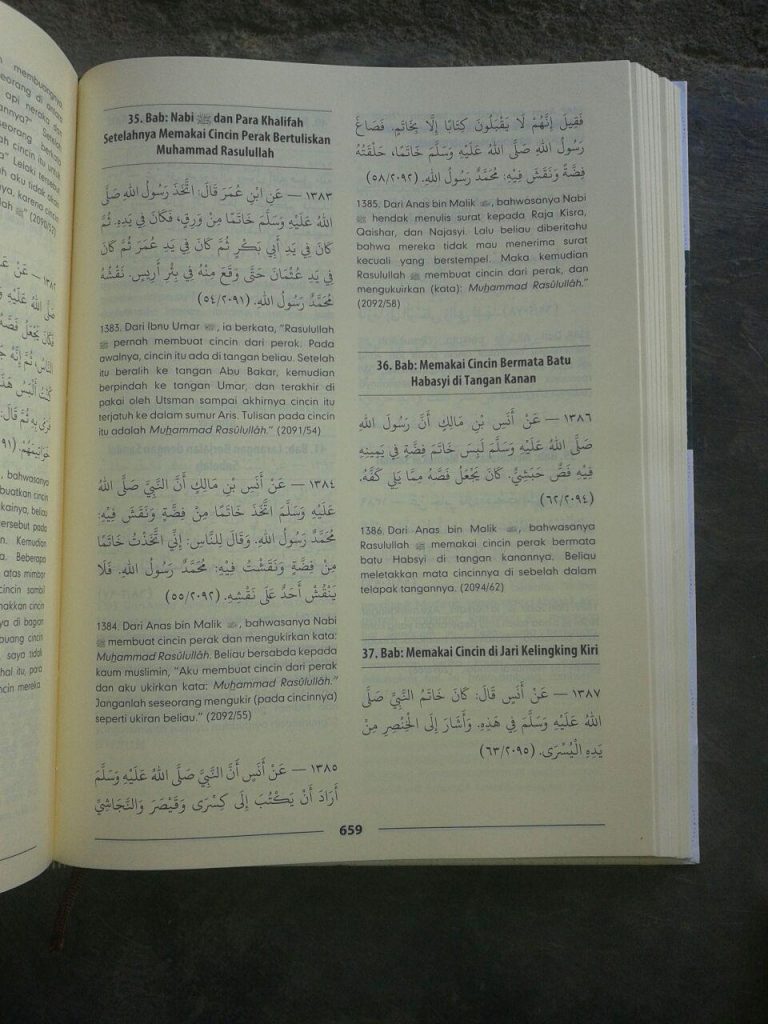 membuangnya
seorang di antara
api neraka dan
annya?" Setelah
seorang berkata
ah cincin itu untuk
a" Lelaki tersebut
aku tidak akan
ya, karena cincin
lah ﷺ" (2090/52)
١٣٨٢ — عَنْ عَبْ
صَلَّى اللهُ عَلَيْهِ وَسَ
فَكَانَ يَجْعَلُ فَصَّهُ
النَّاسُ، ثُمَّ إِنَّهُ جَ
كُنْتُ أَلْبَسُ هَذَ
فَرَمَى بِهِ ثُمَّ قَالَ:
خَوَاتِيمَهُمْ. (٠٩١
, bahwasanya
buatkan cincin
kainya, beliau
ersebut pada
Kemudian
a. Beberapa
atas mimbar
cincin sambil
nakkan cincin
ya di bagian
buang cincin
, saya tidak
hal itu, para
ncin mereka
35. Bab: Nabi ﷺ dan Para Khalifah
Setelahnya Memakai Cincin Perak Bertuliskan
Muhammad Rasulullah
١٣٨٣ — عَنِ ابْنِ عُمَرَ قَالَ: اتَّخَذَ رَسُولُ اللهِ صَلَّى
اللهُ عَلَيْهِ وَسَلَّمَ خَاتَمًا مِنْ وَرِقٍ، فَكَانَ فِي يَدِهِ. ثُمَّ
كَانَ فِي يَدِ أَبِي بَكْرٍ ثُمَّ كَانَ فِي يَدِ عُمَرَ ثُمَّ كَانَ
فِي يَدِ عُثْمَانَ حَتَّى وَقَعَ مِنْهُ فِي بِئْرِ أَرِيسٍ. نَقْشُهُ
مُحَمَّدٌ رَسُولُ اللهِ. (٥٤/٢٠٩١)
1383. Dari Ibnu Umar , ia berkata, "Rasulullah
ﷺ pernah membuat cincin dari perak. Pada
awalnya, cincin itu ada di tangan beliau. Setelah
itu beralih ke tangan Abu Bakar, kemudian
berpindah ke tangan Umar, dan terakhir di
pakai oleh Utsman sampai akhirnya cincin itu
terjatuh ke dalam sumur Aris. Tulisan pada cincin
itu adalah Muḥammad Rasûlullâh." (2091/54)
١٣٨٤ — عَنْ أَنَسِ بْنِ مَالِكٍ أَنَّ النَّبِيَّ صَلَّى اللهُ
عَلَيْهِ وَسَلَّمَ اتَّخَذَ خَاتَمًا مِنْ فِضَّةٍ وَنَقَشَ فِيهِ:
مُحَمَّدٌ رَسُولُ اللهِ. وَقَالَ لِلنَّاسِ: إِنِّي اتَّخَذْتُ خَاتَمًا
مِنْ فِضَّةٍ وَنَقَشْتُ فِيْهِ: مُحَمَّدٌ رَسُولُ اللهِ. فَلَا
يَنْقُشْ أَحَدٌ عَلَى نَقْشِهِ. (٥٥/٢٠٩٢)
1384. Dari Anas bin Malik , bahwasanya Nabi
ﷺ membuat cincin perak dan mengukirkan kata:
Muḥammad Rasûlullâh. Beliau bersabda kepada
kaum muslimin, "Aku membuat cincin dari perak
dan aku ukirkan kata: Muḥammad Rasûlullâh."
Janganlah seseorang mengukir (pada cincinnya)
seperti ukiran beliau." (2092/55)
١٣٨٥ — عَنْ أَنَسٍ أَنَّ النَّبِيَّ صَلَّى اللهُ عَلَيْهِ وَسَلَّمَ
أَرَادَ أَنْ يَكْتُبَ إِلَى كِسْرَى وَقَيْصَرَ وَالنَّجَاشِيِّ
فَقِيلَ إِنَّهُمْ لَا يَقْبَلُونَ كِتَابًا إِلَّا بِخَاتَمٍ. فَصَاغَ
رَسُولُ اللهِ صَلَّى اللهُ عَلَيْهِ وَسَلَّمَ خَاتَمًا، حَلْقَتُهُ
فِضَّةً وَنَقَشَ فِيْهِ: مُحَمَّدٌ رَسُولُ اللهِ. (٥٨/٢٠٩٢)
1385. Dari Anas bin Malik , bahwasanya Nabi
ﷺ hendak menulis surat kepada Raja Kisra,
Qaishar, dan Najasyi. Lalu beliau diberitahu
bahwa mereka tidak mau menerima surat
kecuali yang berstempel. Maka kemudian
Rasulullah ﷺ membuat cincin dari perak, dan
mengukuirkan (kata): Muḥammad Rasûlullâh."
(2092/58)
36. Bab: Memakai Cincin Bermata Batu
Habasyi di Tangan Kanan
١٣٨٦ — عَنْ أَنَسِ بْنِ مَالِكٍ أَنَّ رَسُولَ اللهِ
صَلَّى اللهُ عَلَيْهِ وَسَلَّمَ لَبِسَ خَاتَمَ فِضَّةٍ فِي يَمِينِهِ
فِيْهِ فَصٌّ حَبَشِيٌّ. كَانَ يَجْعَلُ فَصَّهُ مِمَّا يَلِي كَفَّهُ.
(٦٢/٢٠٩٤)
1386. Dari Anas bin Malik , bahwasanya
Rasulullah ﷺ memakai cincin perak bermata
batu Habsyi di tangan kanannya. Beliau
meletakkan mata cincinnya di sebelah dalam
telapak tangannya. (2094/62)
37. Bab: Memakai Cincin di Jari Kelingking Kiri
١٣٨٧ — عَنْ أَنَسٍ قَالَ: كَانَ خَاتَمُ النَّبِيِّ صَلَّى
اللهُ عَلَيْهِ وَسَلَّمَ فِي هَذِهِ. وَأَشَارَ إِلَى الْخِنْصِرِ مِنْ
يَدِهِ الْيُسْرَى. (٦٣/٢٠٩٥)
659